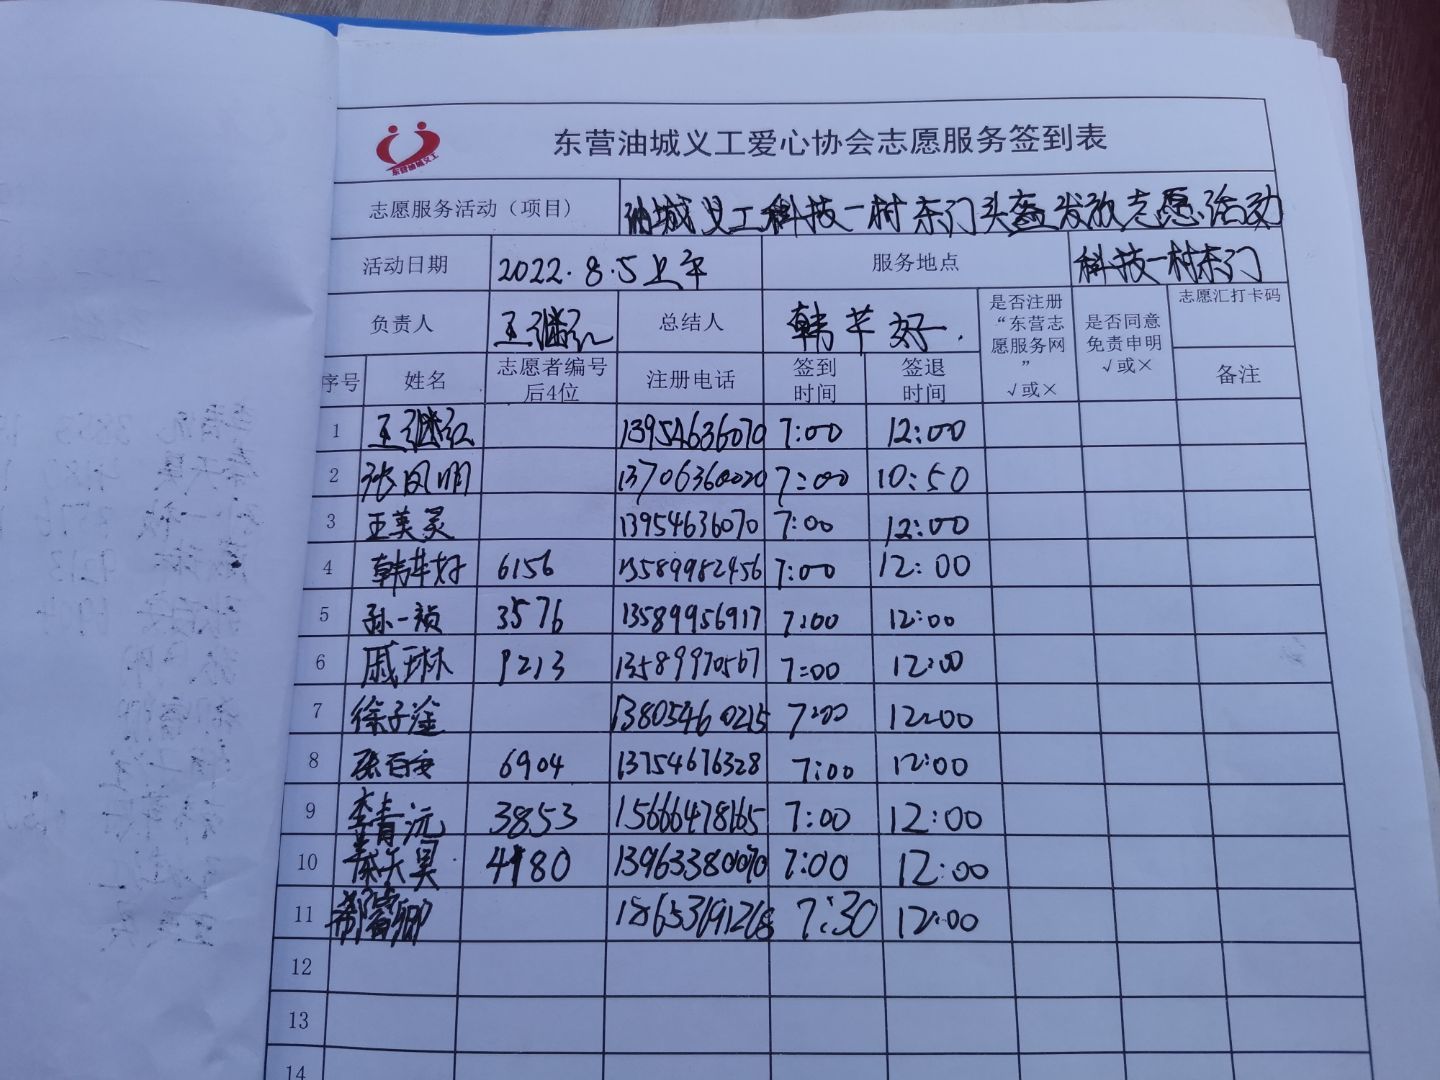 东营油城义工爱心协会志愿服务签到表
东营油城义工
志愿服务活动（项目） 油城义工科技一村东门头盔发放志愿活动
活动日期 2022.8.5上午 服务地点 科技一村东门
负责人 王继红 总结人 韩芊好. 是否注册“东营志愿服务网” √或× 是否同意免责申明 √或× 志愿汇打卡码
序号 姓名 志愿者编号后4位 注册电话 签到时间 签退时间 备注
1 王继红 13954636070 7:00 12:00
2 张凤明 13706360020 7:00 10:50
3 王英灵 13954636070 7:00 12:00
4 韩芊好 6156 13589982456 7:00 12:00
5 孙一祯 3576 13589956917 7:00 12:00
6 戚琳 9213 13589970567 7:00 12:00
7 徐子淦 13805460215 7:00 12:00
8 张百安 6904 13754676328 7:00 12:00
9 李青沅 3853 15666478165 7:00 12:00
10 秦矢昊 4980 13963380070 7:00 12:00
11 7:30 12:00
12
13
14